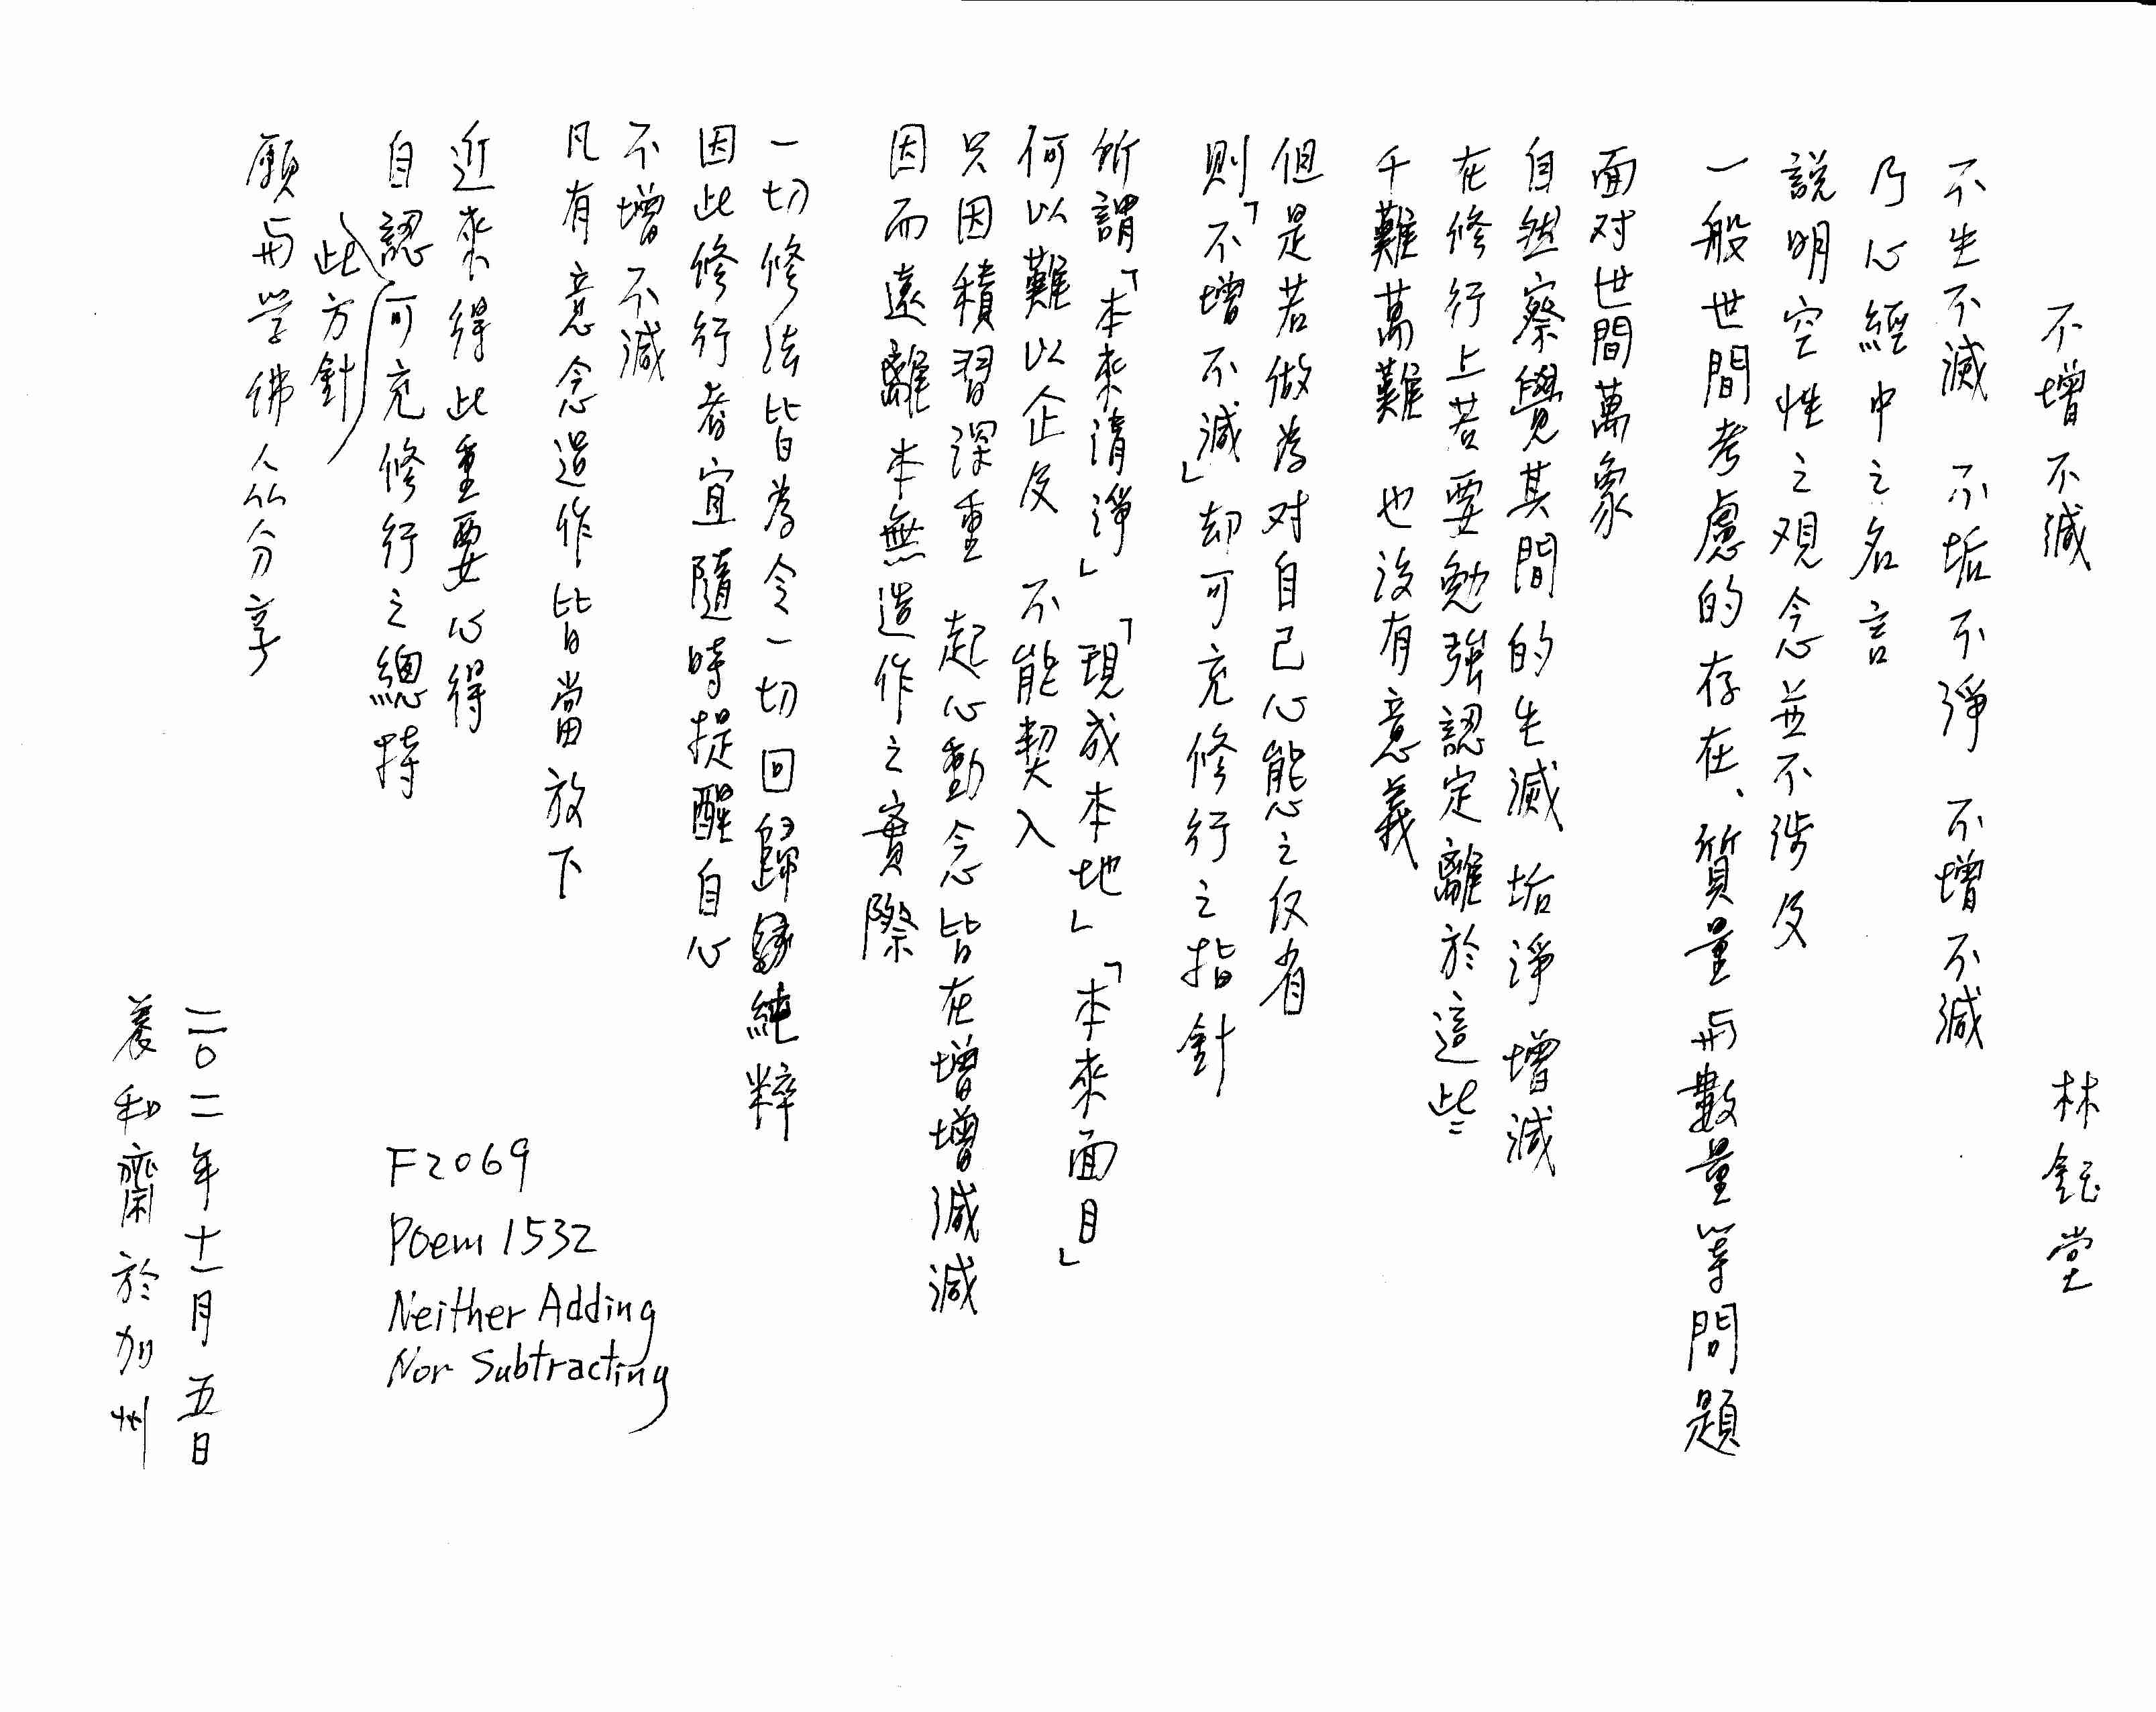 不增不減　林鈺堂
不生不滅　不垢不淨　不增不減
乃心經中之名言
說明空性之观念並不涉及
一般世間考慮的存在、質量与數量等問題
面对世間萬象
自然察覺其間的生滅　垢淨　增減
在修行上若要勉強認定離於這些
千難萬難　也沒有意義
但是若做為对自己心態之反省
則「不增不減」却可充修行之指針
所謂「本來清淨」「現成本地」「本來面目」
何以難以企及　不能契入
只因積習深重　起心動念皆在增增減減
因而遠離本無造作之實際
一切修法皆為令一切回歸純粹
因此修行者宜隨時提醒自心
不增不減
凡有意念造作皆當放下
近來得此重要心得
自認此方針可充修行之總持
願与学佛人仦分享
二〇二一年十一月五日
養和齋於加州
F2069
Poem 1532
Neither Adding
Nor Subtracting